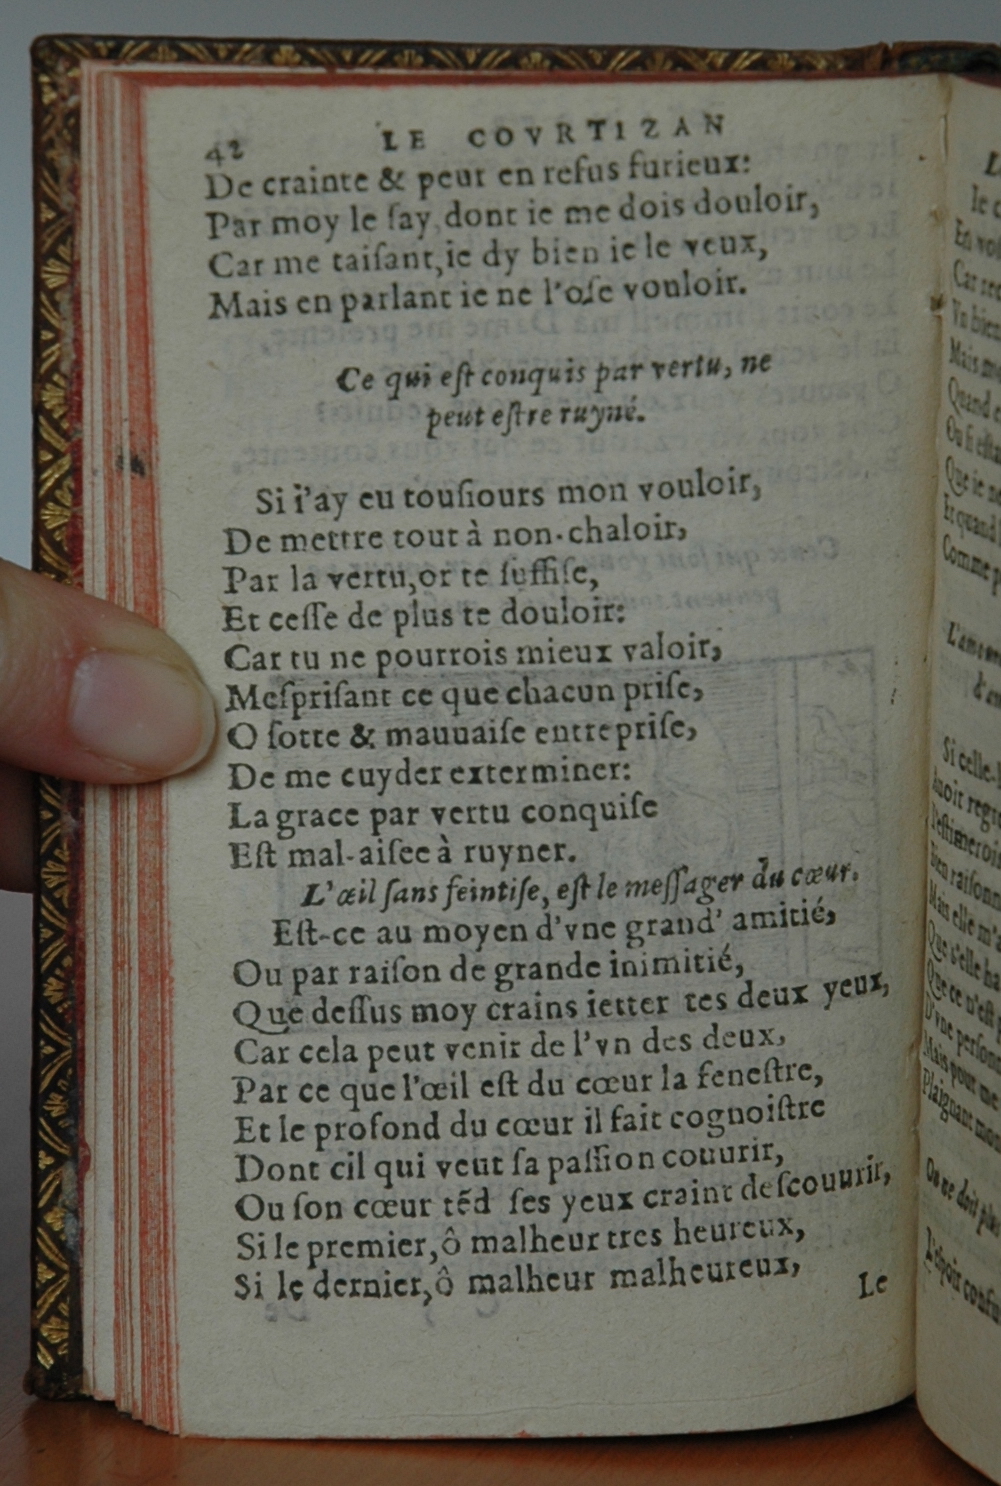 42 LE COVRTIZAN
De crainte & peur en refus furieux:
Par moy le ſay, dont ie me dois douloir,
Car me taiſant, ie dy bien ie le veux,
Mais en parlant ie ne l'oſe vouloir.
Ce qui eſt conquis par vertu, ne
peut eſtre ruyné.
Si i'ay eu touſiours mon vouloir,
De mettre tout à non-chaloir,
Par la vertu, or te ſuffiſe,
Et ceſſe de plus te douloir:
Car tu ne pourrois mieux valoir,
Meſpriſant ce que chacun priſe,
O ſotte & mauuaiſe entrepriſe,
De me cuyder exterminer:
La grace par vertu conquiſe
Eſt mal-aiſee à ruyner.
L'œil ſans feintiſe, eſt le meſſager du cœur.
Eſt-ce au moyen d'vne grand' amitié,
Ou par raiſon de grande inimitié,
Que deſſus moy crains ietter tes deux yeux,
Car cela peut venir de l'vn des deux,
Par ce que l'œil eſt du cœur la feneſtre,
Et le profond du cœur il fait cognoiſtre
Dont cil qui veut ſa paſſion couurir,
Ou ſon cœur tẽd ſes yeux craint deſcouurir,
Si le premier, ô malheur tres heureux,
Si le dernier, ô malheur malheureux,
Le
Ie
En
Car
Vn bien
Mais
Quand
Ou ſi
Que ie
Et quand
Comme
L'amour
Si celle-
Auoir
Bien
Mais elle m'
Que s'elle
Que ce n'eſt
D'vne
Mais pour me
Plaignant
On ne doit
L'eſpoir